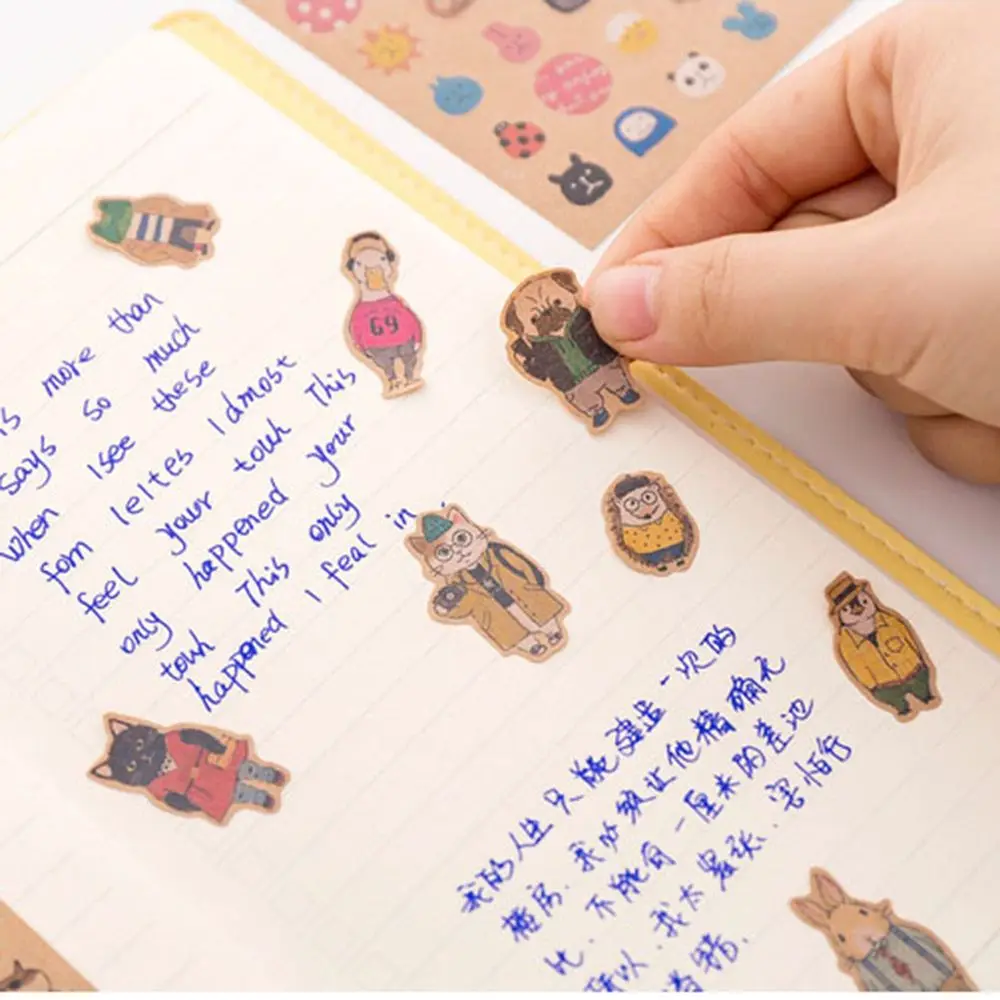 is more than
says so much
when I see these
form leltes I dmost
feel your touh This
only happened your
touh This only
happened I feal in.
69
我的人生只能建造一次的
楼房.我必须让他精确无
比.不能有一厘米的差池
所以.我太紧张.害怕行